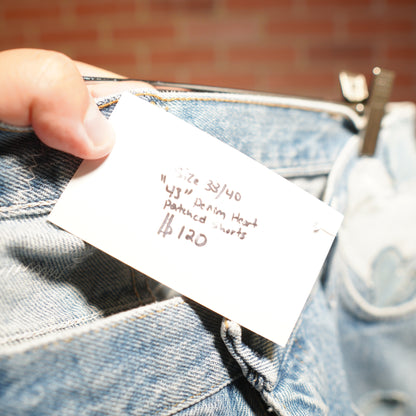 Size 33/40
"43" Denim Heart
patched shorts
$120